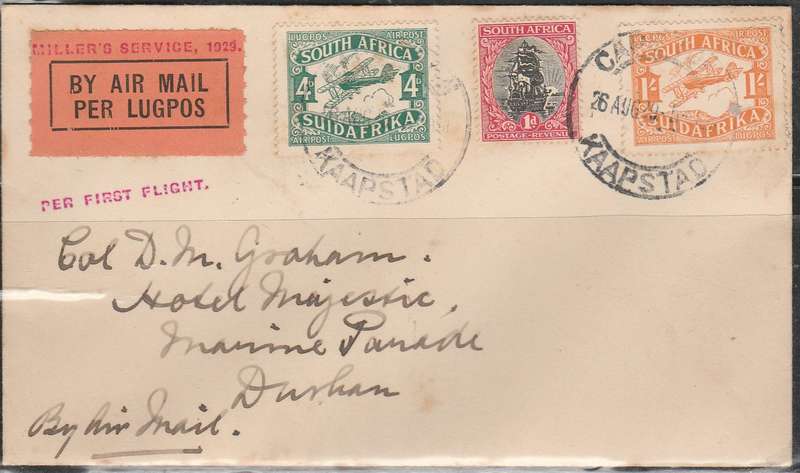 MILLER'S SERVICE, 1929.
BY AIR MAIL
PER LUGPOS
LUGPOS AIR POST
SOUTH AFRICA
4D 4D
SUIDAFRIKA
AIR POST LUGPOS
KAAPSTAD
SOUTH AFRICA
1d
POSTAGE-REVENUE
LUGPOS AIR POST
SOUTH AFRICA
1/- 1/-
SUIDAFRIKA
AIR POST LUGPOS
26 AUG 29
KAAPSTAD
PER FIRST FLIGHT.
Col D. M. Graham.
Hotel Majestic,
Marine Parade
Durban
By Air Mail.